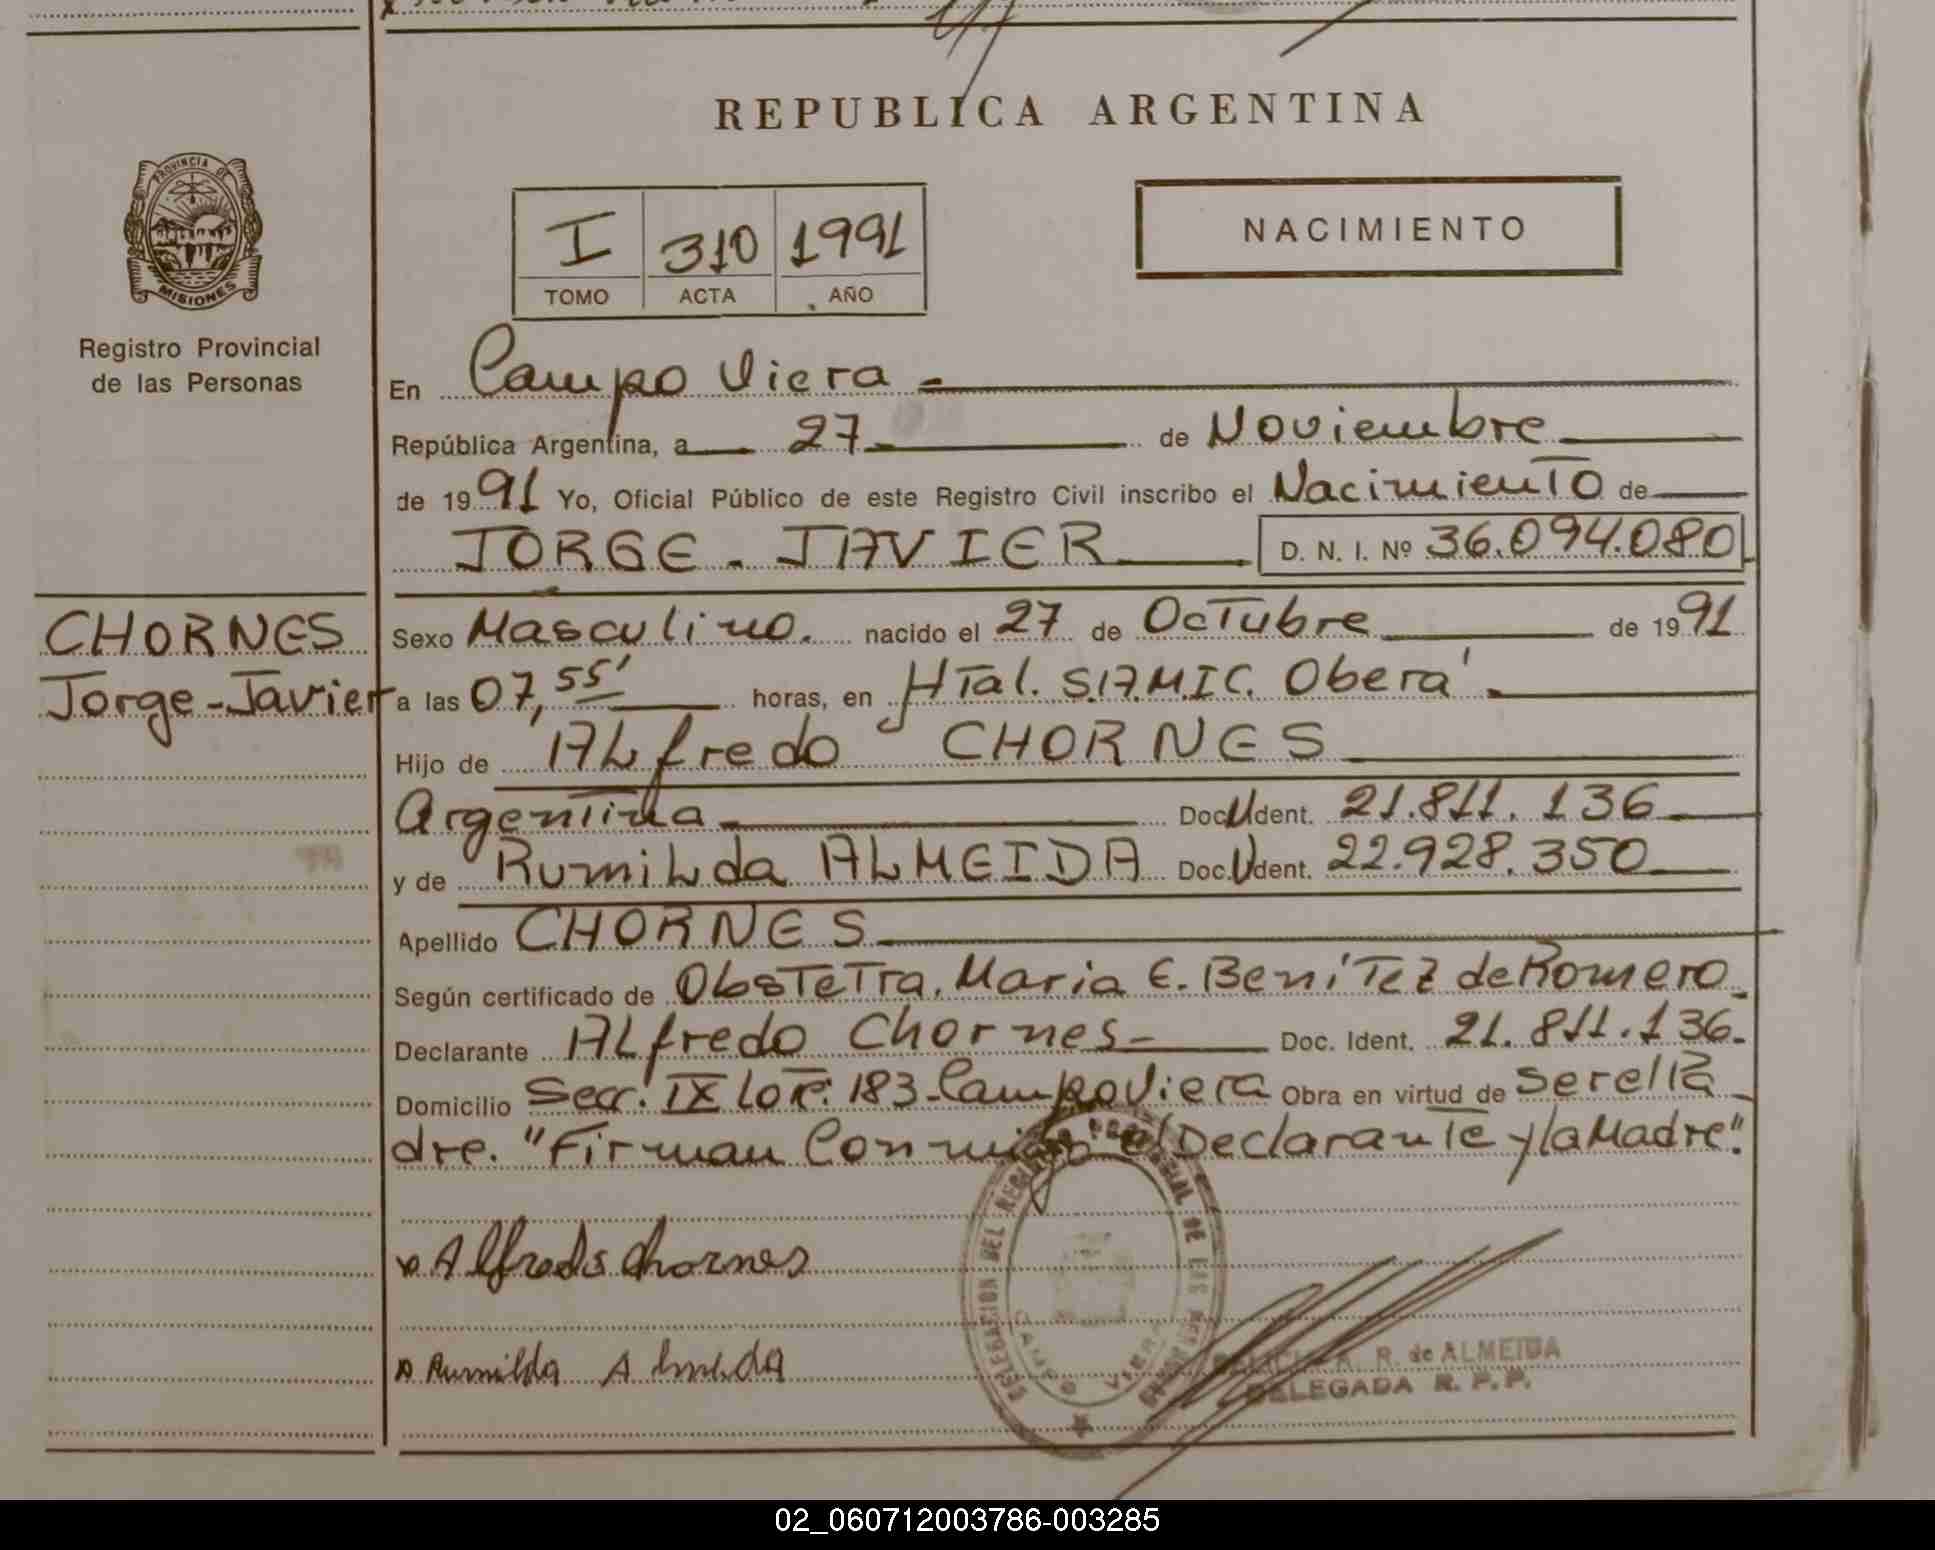 REPUBLICA ARGENTINA
PROVINCIA DE
MISIONES
Registro Provincial
de las Personas
I 310 1991
TOMO ACTA AÑO
NACIMIENTO
En Campo Viera
República Argentina, a 27 de Noviembre
de 1991 Yo, Oficial Público de este Registro Civil inscribo el Nacimiento de
JORGE - JAVIER D. N. I. Nº 36.094.080
CHORNES
Jorge-Javier
Sexo Masculino. nacido el 27 de Octubre de 1991
a las 07,55' horas, en HTal. S.A.M.I.C. Oberá
Hijo de ALfredo CHORNES
Argentina Doc. U Ident. 21.811.136
y de RumiLda ALMEIDA Doc. U Ident. 22.928.350
Apellido CHORNES
Según certificado de ObsTeTra. Maria E. BeníTez de Romero
Declarante ALfredo Chornes- Doc. Ident. 21.811.136.
Domicilio Secc. IX LoTe: 183-Campo Viera Obra en virtud de ser el Pa
dre. "Firman Conmigo el Declarante y la Madre".
Alfredo Chornes
Rumilda Almeida
DELEGACION DEL REGISTRO PROVINCIAL DE LAS PERSONAS
CAMPO VIERA
R. de ALMEIDA
DELEGADA R. P. P.
02_060712003786-003285